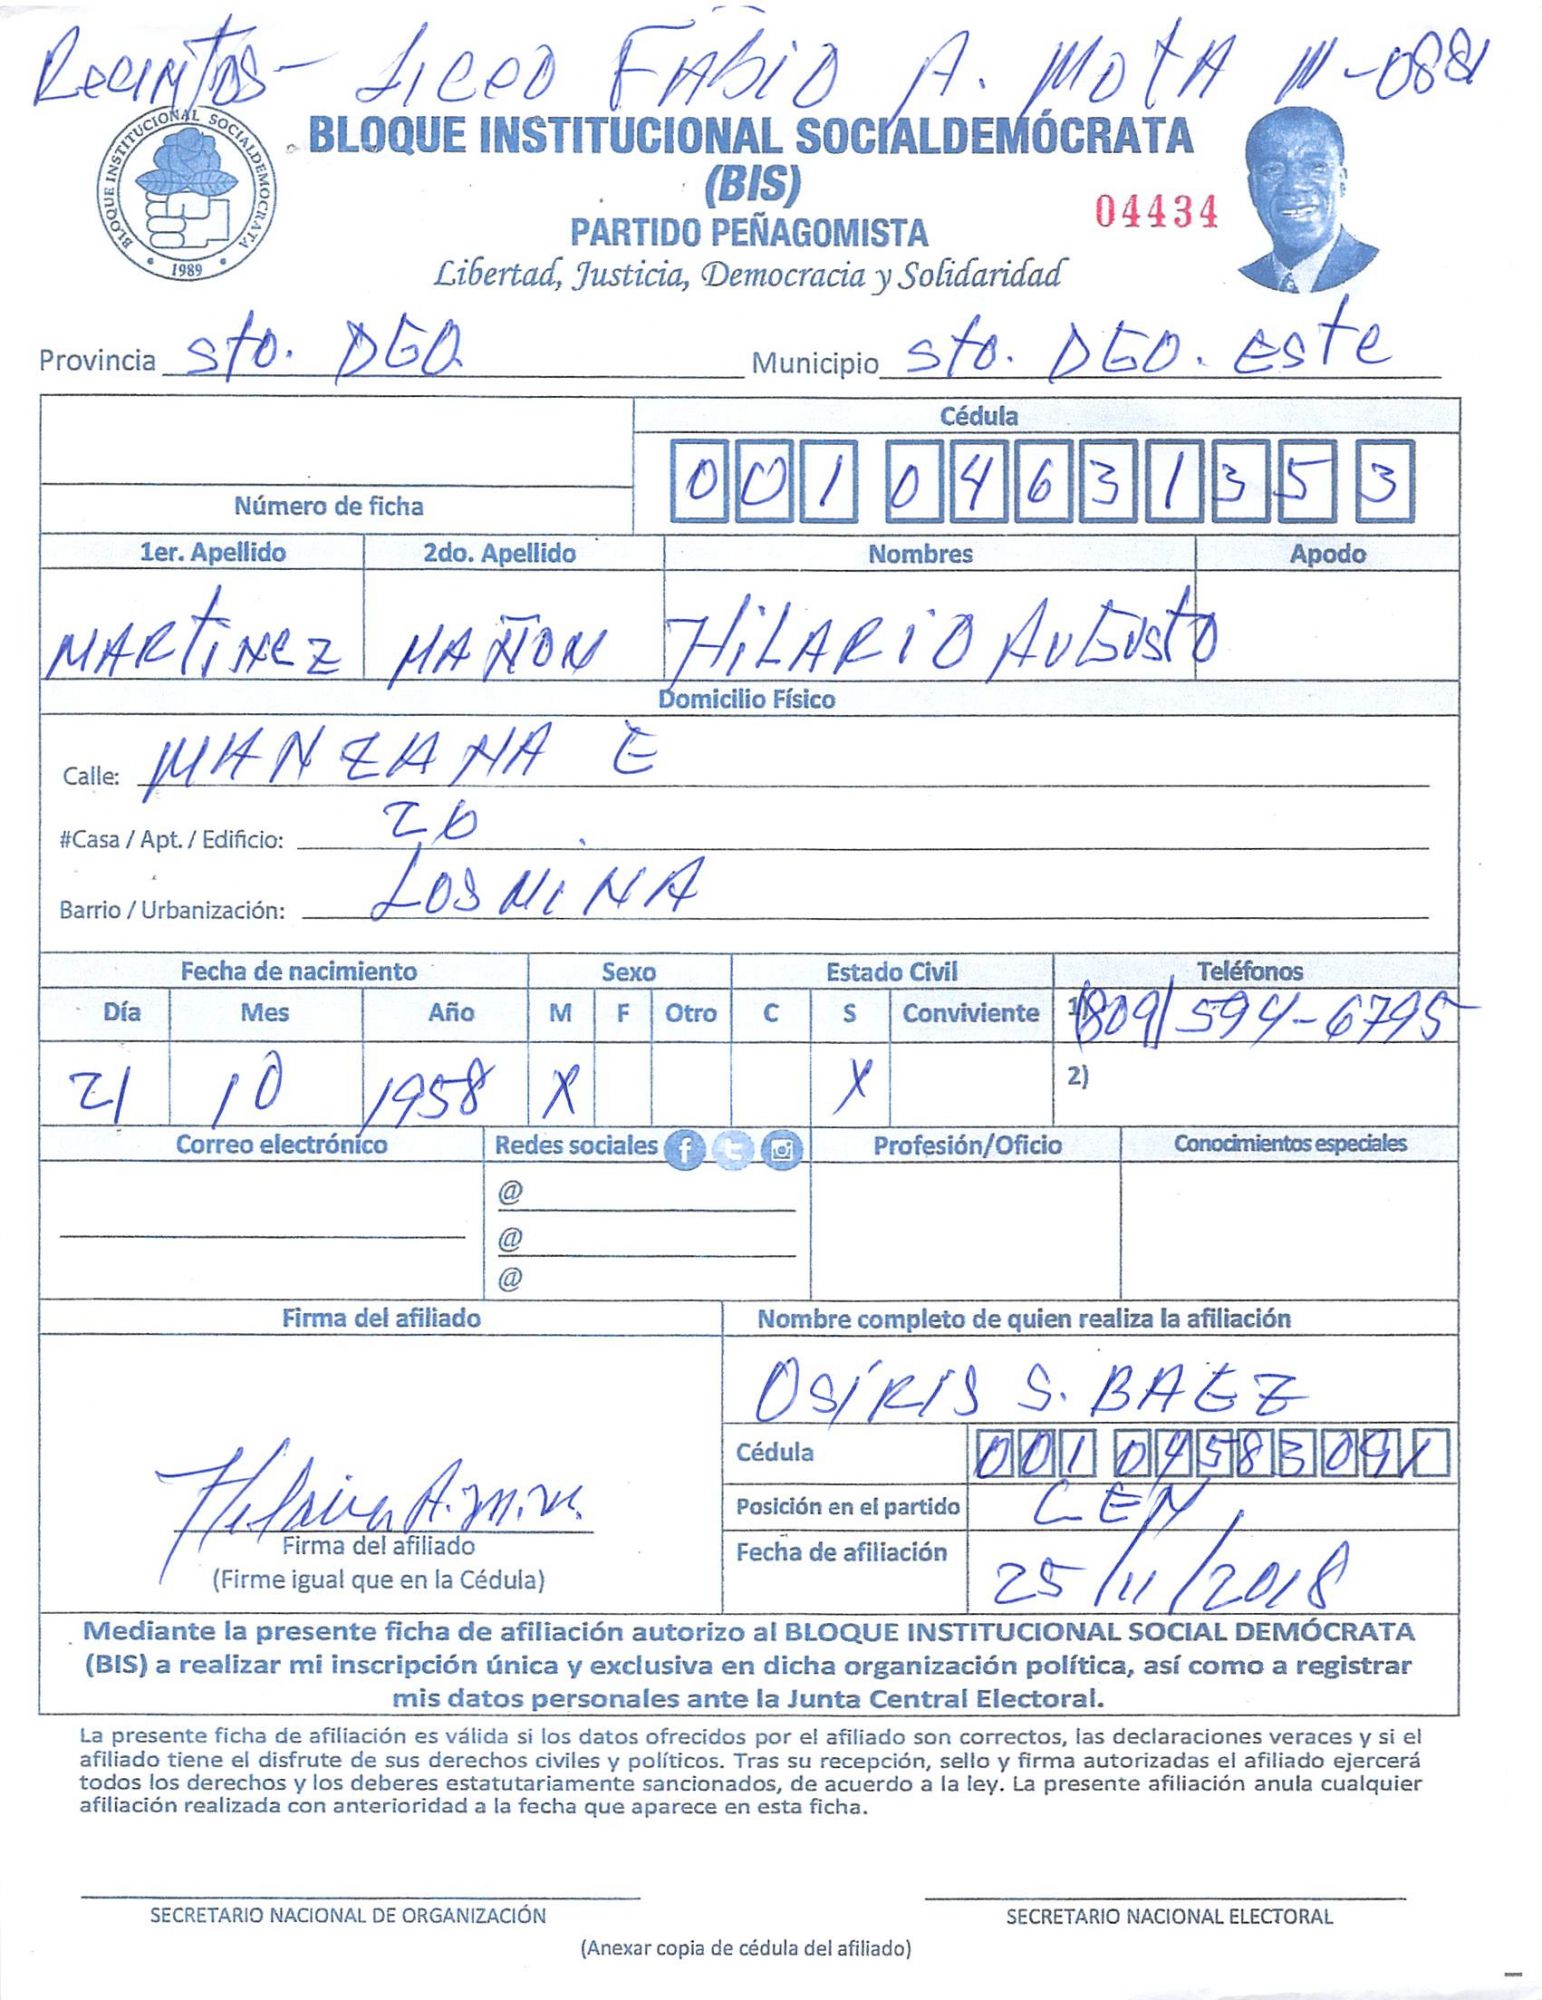 Recintos - Liceo FABIO A. MOTA N-0881
BLOQUE INSTITUCIONAL SOCIALDEMÓCRATA
(BIS)
PARTIDO PEÑAGOMISTA
04434
Libertad, Justicia, Democracia y Solidaridad
BLOQUE INSTITUCIONAL SOCIALDEMOCRATA
1989
Provincia Sto. DGO. Municipio Sto. DGO. Este
Cédula
001 0463135 3
Número de ficha
1er. Apellido 2do. Apellido Nombres Apodo
MARTINEZ MAÑON HILARIO AUGUSTO
Domicilio Físico
Calle: MANZANA E
#Casa / Apt. / Edificio: 26
Barrio / Urbanización: LOS MINA
Fecha de nacimiento Sexo Estado Civil Teléfonos
Día Mes Año M F Otro C S Conviviente 1) (809) 594-6795
21 10 1958 X X 2)
Correo electrónico Redes sociales Profesión/Oficio Conocimientos especiales
@
@
@
Firma del afiliado Nombre completo de quien realiza la afiliación
OSIRIS S. BAEZ
Cédula 001 0458309 1
Posición en el partido CEN
Firma del afiliado
Fecha de afiliación 25/11/2018
(Firme igual que en la Cédula)
Mediante la presente ficha de afiliación autorizo al BLOQUE INSTITUCIONAL SOCIAL DEMÓCRATA
(BIS) a realizar mi inscripción única y exclusiva en dicha organización política, así como a registrar
mis datos personales ante la Junta Central Electoral.
La presente ficha de afiliación es válida si los datos ofrecidos por el afiliado son correctos, las declaraciones veraces y si el
afiliado tiene el disfrute de sus derechos civiles y políticos. Tras su recepción, sello y firma autorizadas el afiliado ejercerá
todos los derechos y los deberes estatutariamente sancionados, de acuerdo a la ley. La presente afiliación anula cualquier
afiliación realizada con anterioridad a la fecha que aparece en esta ficha.
SECRETARIO NACIONAL DE ORGANIZACIÓN SECRETARIO NACIONAL ELECTORAL
(Anexar copia de cédula del afiliado)